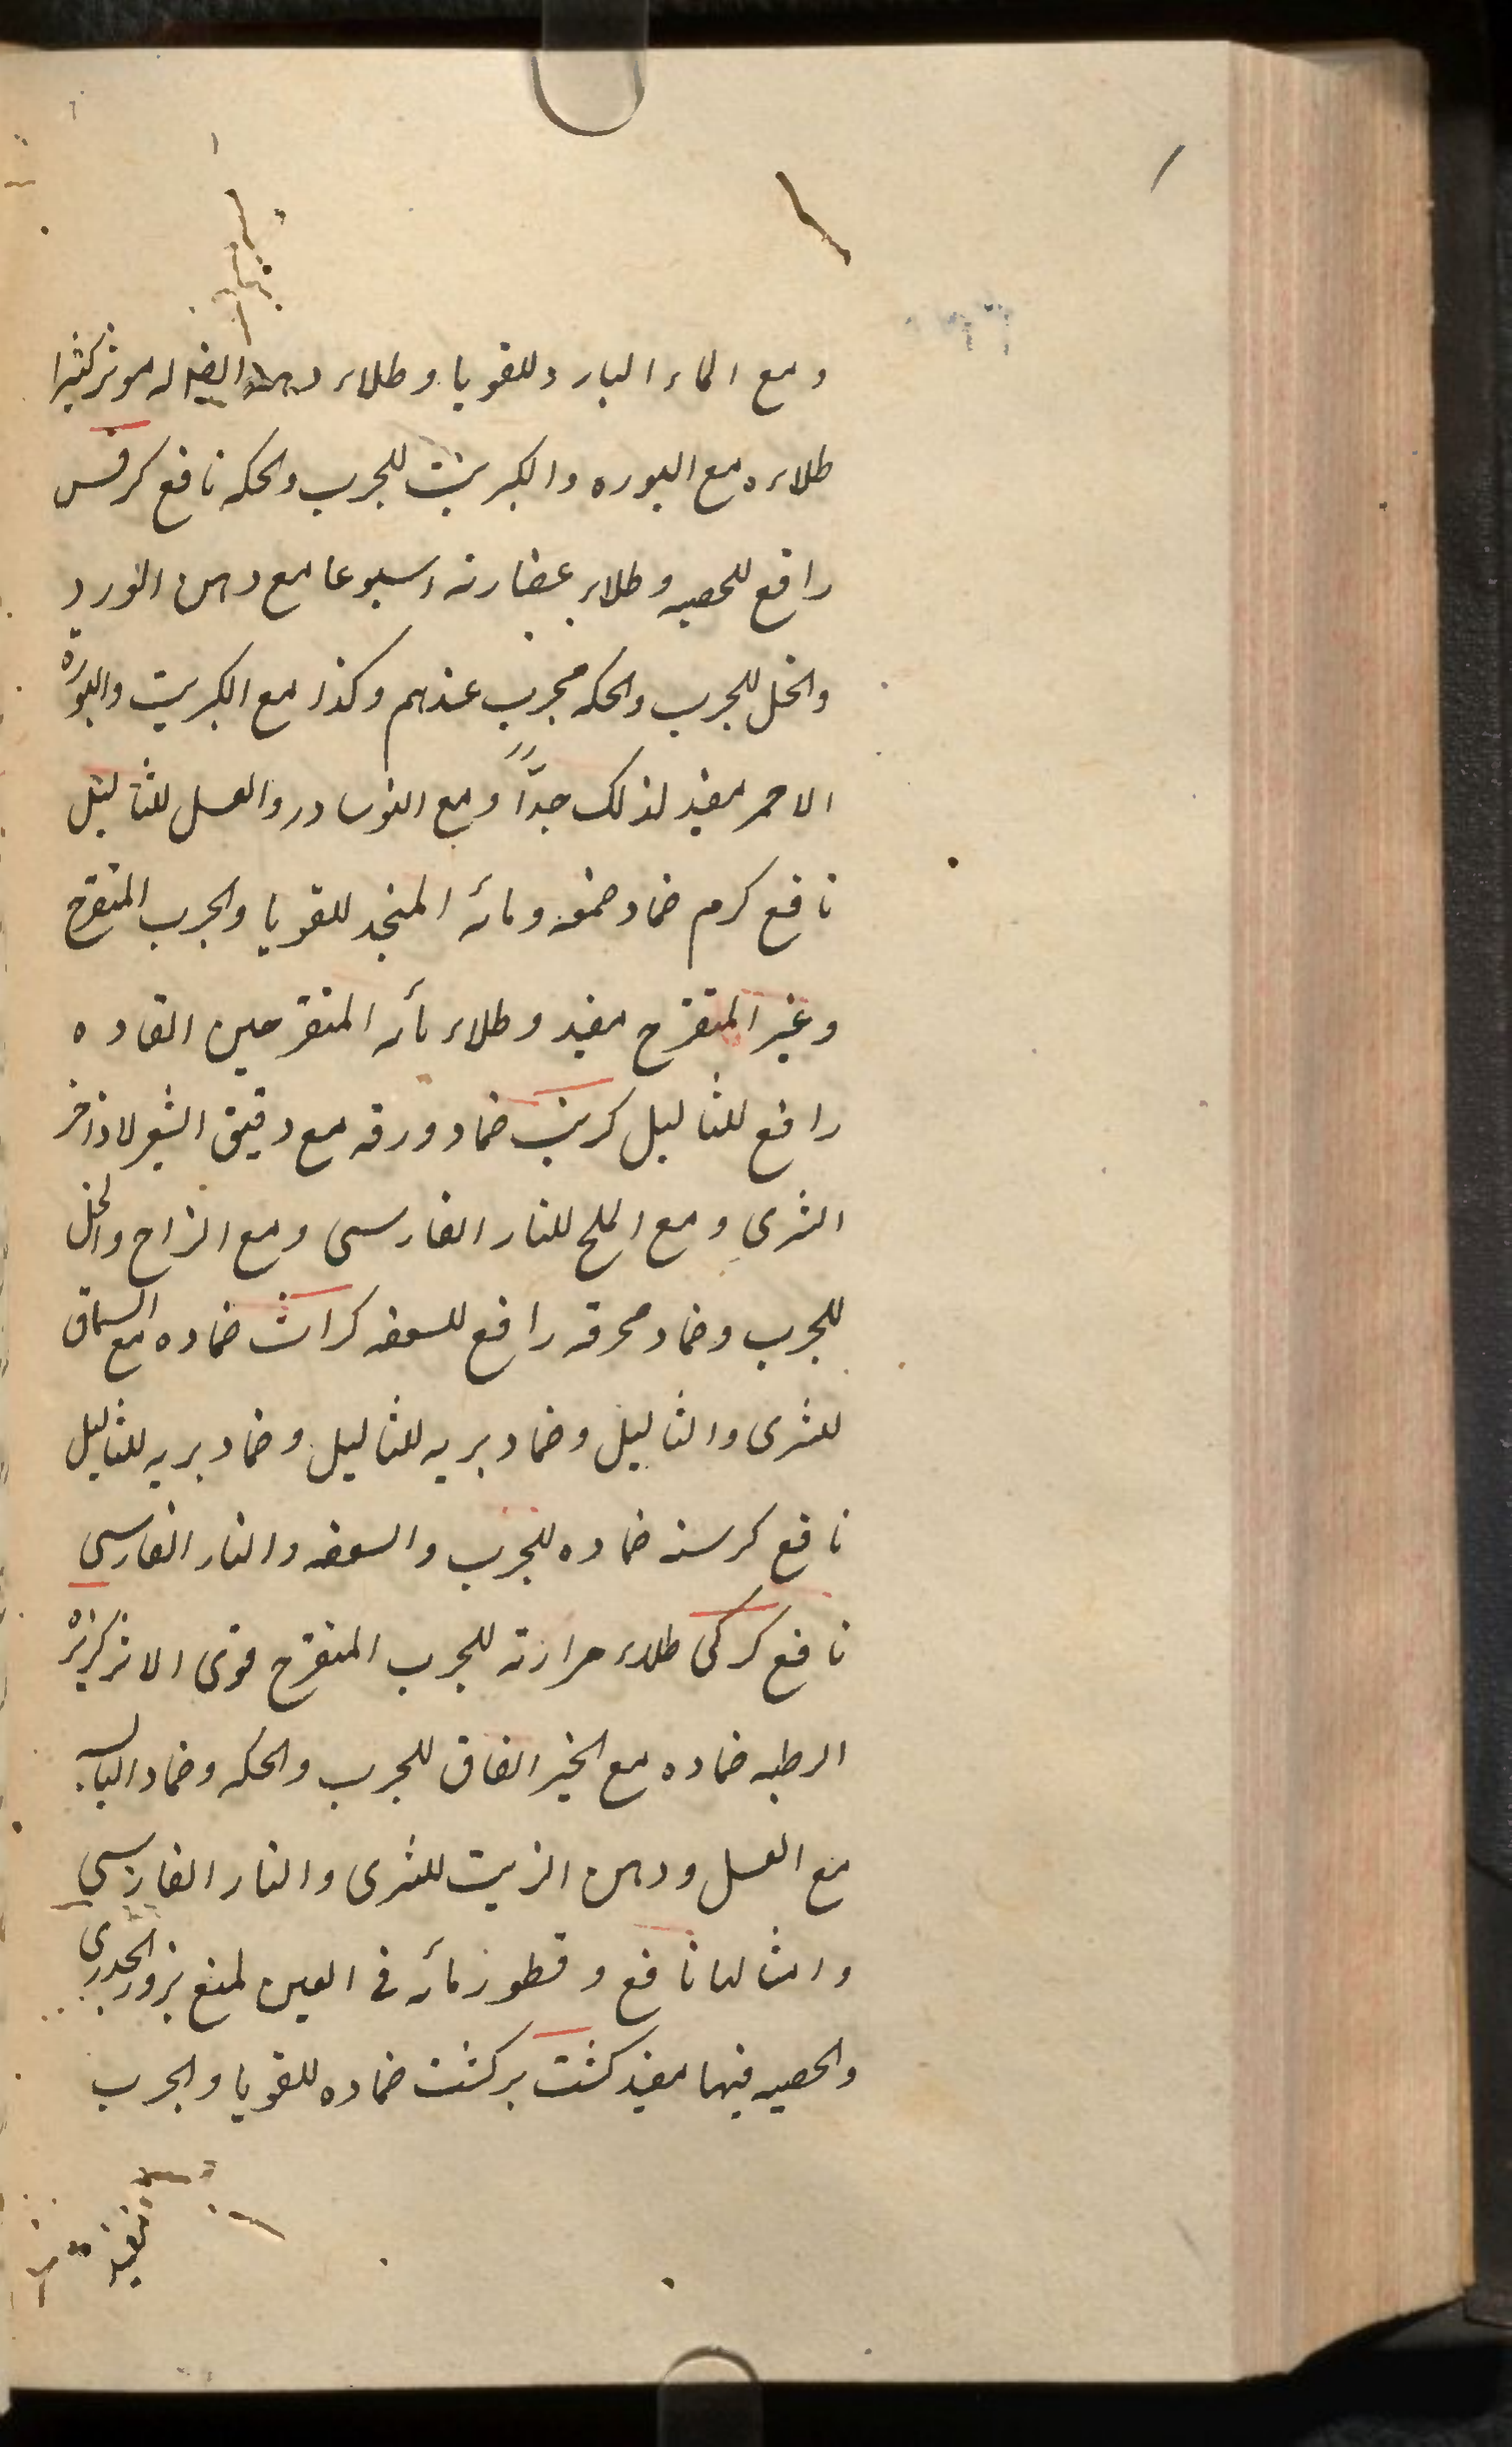 ومع الماء البارد للقوبا وطلاء دهنه ايضا له موثر كثيرا
طلاءه مع البوره والكبريت للجرب والحكه نافع كرفس
رافع للحصبه وطلاء عصارته اسبوعا مع دهن الورد
والخل للجرب والحكه مجرب عندهم وكذا مع الكبريت والبورة
الاحمر مفيد لذلك جدّاً ومع النوسادر والعسل للثاليل
نافع كرم ضماد صمغه ومائه المنجد للقوبا والجرب المتقرح
وغير المتقرح مفيد وطلاء مائه المتقر حين القاده
رافع للثاليل كرنب ضماد ورقه مع دقيق الشعير لاذاخر
الشرى ومع الملح للنار الفارسى ومع الزاج والخل
للجرب وضماد محرقه رافع للسعفه كراث ضماده مع السماق
للشرى والثاليل وضماد بريه للثاليل وضماد بريه للثاليل
نافع كرسنه ضماده للجرب والسعفه والنار الفارسى
نافع كركى طلاء مرارته للجرب المتقرح قوى الاثر كزبره
الرطبه ضماده مع الخبز الفاق للجرب والحكه وضماد اليابسه
مع العسل ودهن الزيت للشرى والنار الفارسى
والثاليا نافع وقطور مائه فى العين لمنع بزور الجدرى
والحصبه فيها مفيد كشت بركشت ضماده للقوبا والجرب